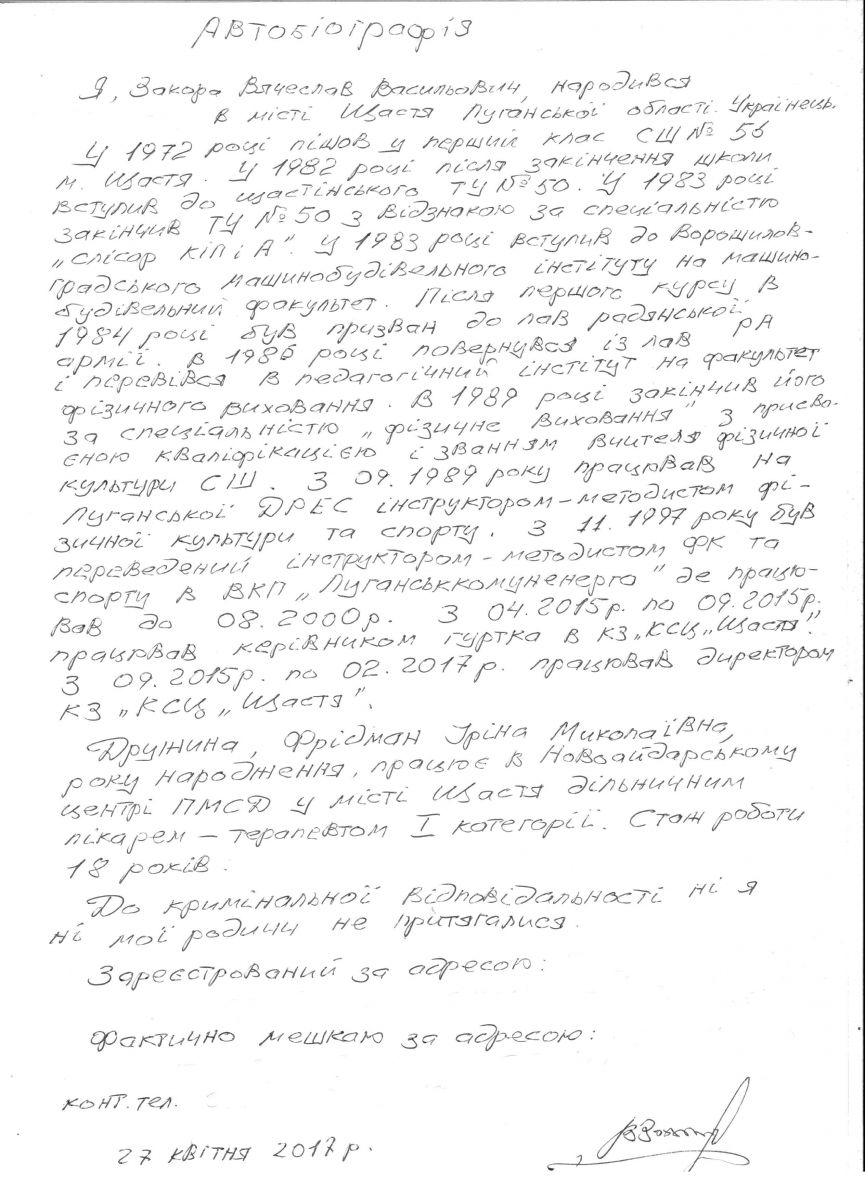 Автобіографія
Я, Закора Вячеслав Васильович, народився
в місті Щастя Луганської області. Українець.
У 1972 році пішов у перший клас СШ № 56
м. Щастя. У 1982 році після закінчення школи
вступив до щастінського ТУ № 50. У 1983 році
закінчив ТУ № 50 з відзнакою за спеціальністю
„слісар КІП і А". У 1983 році вступив до Ворошилов-
градського машинобудівельного інституту на машино-
будівельний факультет. Після першого курсу в
1984 році був призван до лав радянської
армії. В 1986 році повернувся із лав РА
і перевівся в педагогічний інститут на факультет
фізичного виховання. В 1989 році закінчив його
за спеціальністю „фізичне виховання" з присво-
єною кваліфікацією і званням вчителя фізичної
культури СШ. З 09.1989 року працював на
Луганської ДРЕС інструктором-методистом фі-
зичної культури та спорту. З 11.1997 року був
переведений інструктором-методистом ФК та
спорту в ВКП „Луганськкомуненерго" де працю-
вав до 08.2000р. З 04.2015р. по 09.2015р.
працював керівником гуртка в КЗ „КСЦ „Щастя".
З 09.2015р. по 02.2017р. працював директором
КЗ „КСЦ „Щастя".
Дружина, Фрідман Іріна Миколаївна,
року народження, працює в Новоайдарському
центрі ПМСД у місті Щастя дільничним
лікарем – терапевтом I категорії. Стаж роботи
18 років.
До кримінальної відповідальності ні я
ні мої родичи не притягалися.
Зареєстрований за адресою:
Фактично мешкаю за адресою:
конт. тел.
27 квітня 2017 р.